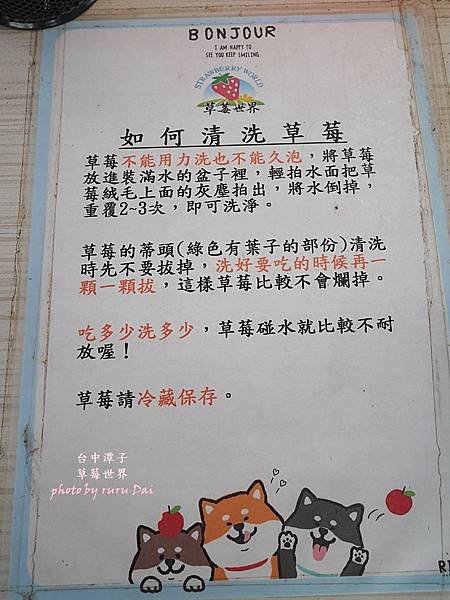 BONJOUR
I AM HAPPY TO
SEE YOU KEEP SMILING.
STRAWBERRY WORLD
草莓世界
如何清洗草莓
草莓不能用力洗也不能久泡，將草莓
放進裝滿水的盆子裡，輕拍水面把草
莓絨毛上面的灰塵拍出，將水倒掉，
重覆2~3次，即可洗淨。
草莓的蒂頭(綠色有葉子的部份)清洗
時先不要拔掉，洗好要吃的時候再一
顆一顆拔，這樣草莓比較不會爛掉。
吃多少洗多少，草莓碰水就比較不耐
放喔！
草莓請冷藏保存。
台中潭子
草莓世界
photo by ruru Dai